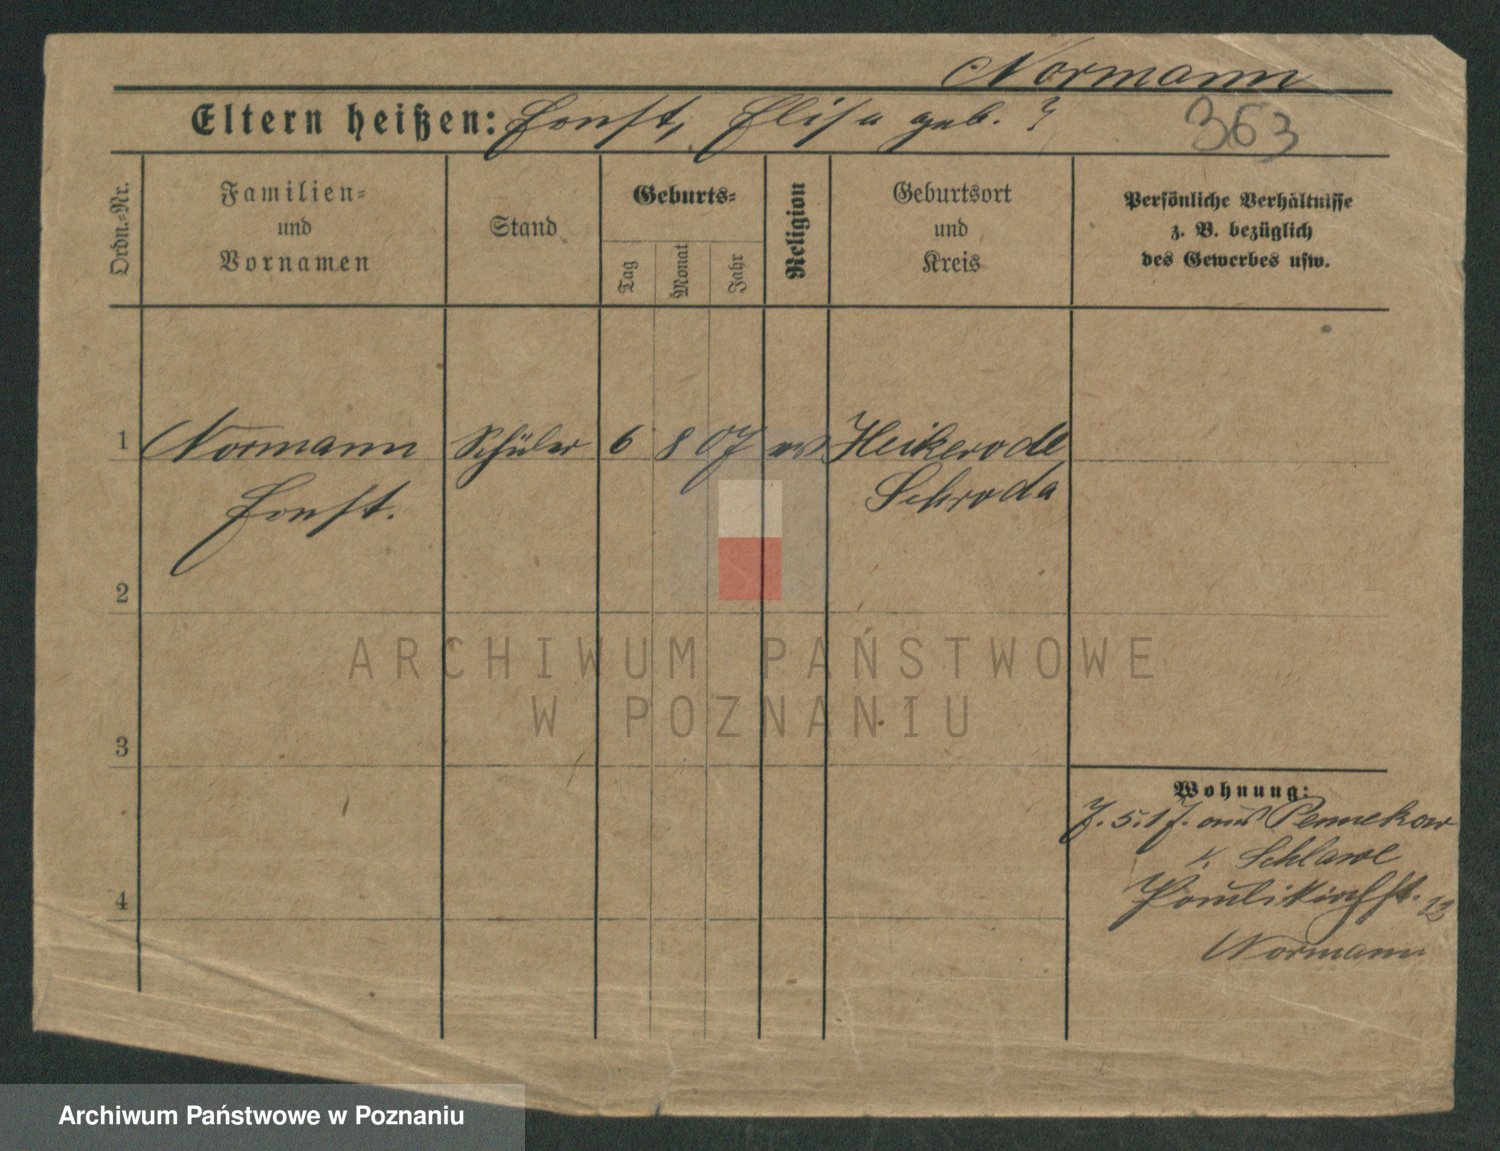 Normann
Eltern heißen: Ernst, Elisa geb. ?
363
Ordn.-Nr.
Familien- und Vornamen
Stand
Geburts-
Tag
Monat
Jahr
Religion
Geburtsort und Kreis
Persönliche Verhältnisse
z. B. bezüglich
des Gewerbes usw.
1 Normann Schüler 6 8 07 Heikerode
Ernst. Schroda
2
3
4
Wohnung:
J. 5.17. aus Pennekow
k. Schlawe
Paulikirchst. 12
Normann
ARCHIWUM PAŃSTWOWE
W POZNANIU
Archiwum Państwowe w Poznaniu